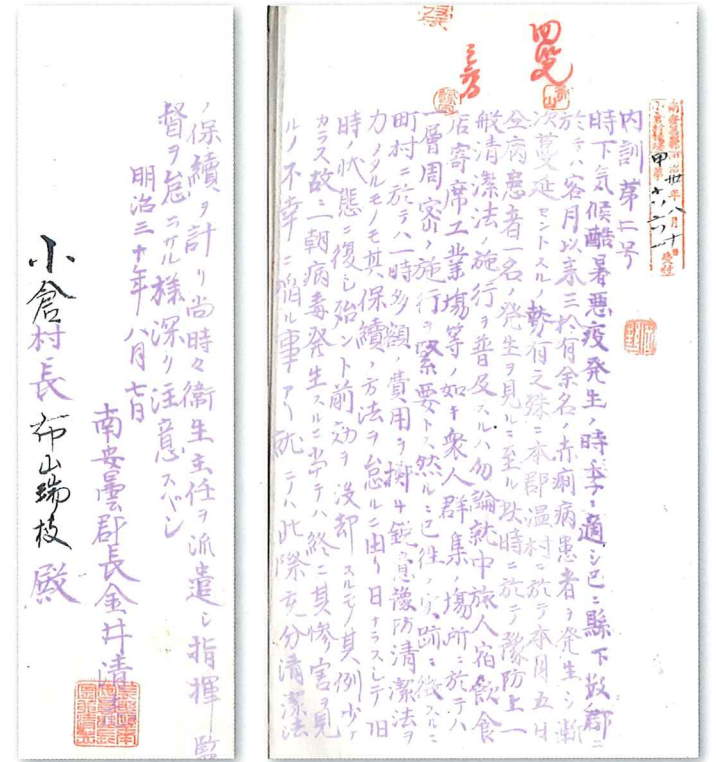 内訓第二号
時下気候酷暑悪疫発生ノ時季ニ適シ已ニ縣下数郡ニ
於テハ客月以来三於有余名ノ赤痢病患者ヲ発生シ漸
次蔓延セントスルノ勢有之殊ニ本郡温村ニ於テ本月五日
全病患者一名ノ発生ヲ見ルニ至ル此時ニ於テ豫防上一
般清潔法ノ施行ヲ普及スルハ勿論就中旅人宿飲食
店寄席工業場等ノ如キ衆人群集ノ場所ニ於テハ
一層周密ノ施行ヲ緊要トス然ルニ已往ノ実跡ニ徴スルニ
町村ニ於テハ一時多額ノ費用ヲ擲チ鋭意豫防清潔法ヲ
力メタルモノモ其保續ノ方法ヲ怠ルニ由リ日ナラスシテ旧
時ノ状態ニ復シ殆ント前功ヲ没却スルモノ其例少ナ
カラス故ニ一朝病毒発生スルニ当テハ終ニ其惨害ヲ見
ルノ不幸ニ陥ル事アリ就テハ此際充分清潔法
ノ保續ヲ計リ尚時々衛生主任ヲ派遣シ指揮監
督ヲ怠ラサル様深ク注意スベシ
明治三十年八月七日
南安曇郡長金井清
小倉村長布山瑞枝殿
回覧